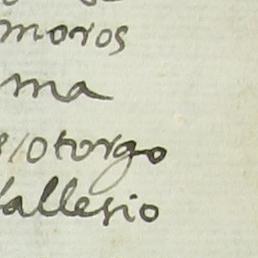 moros
ma
otorgo
allesio